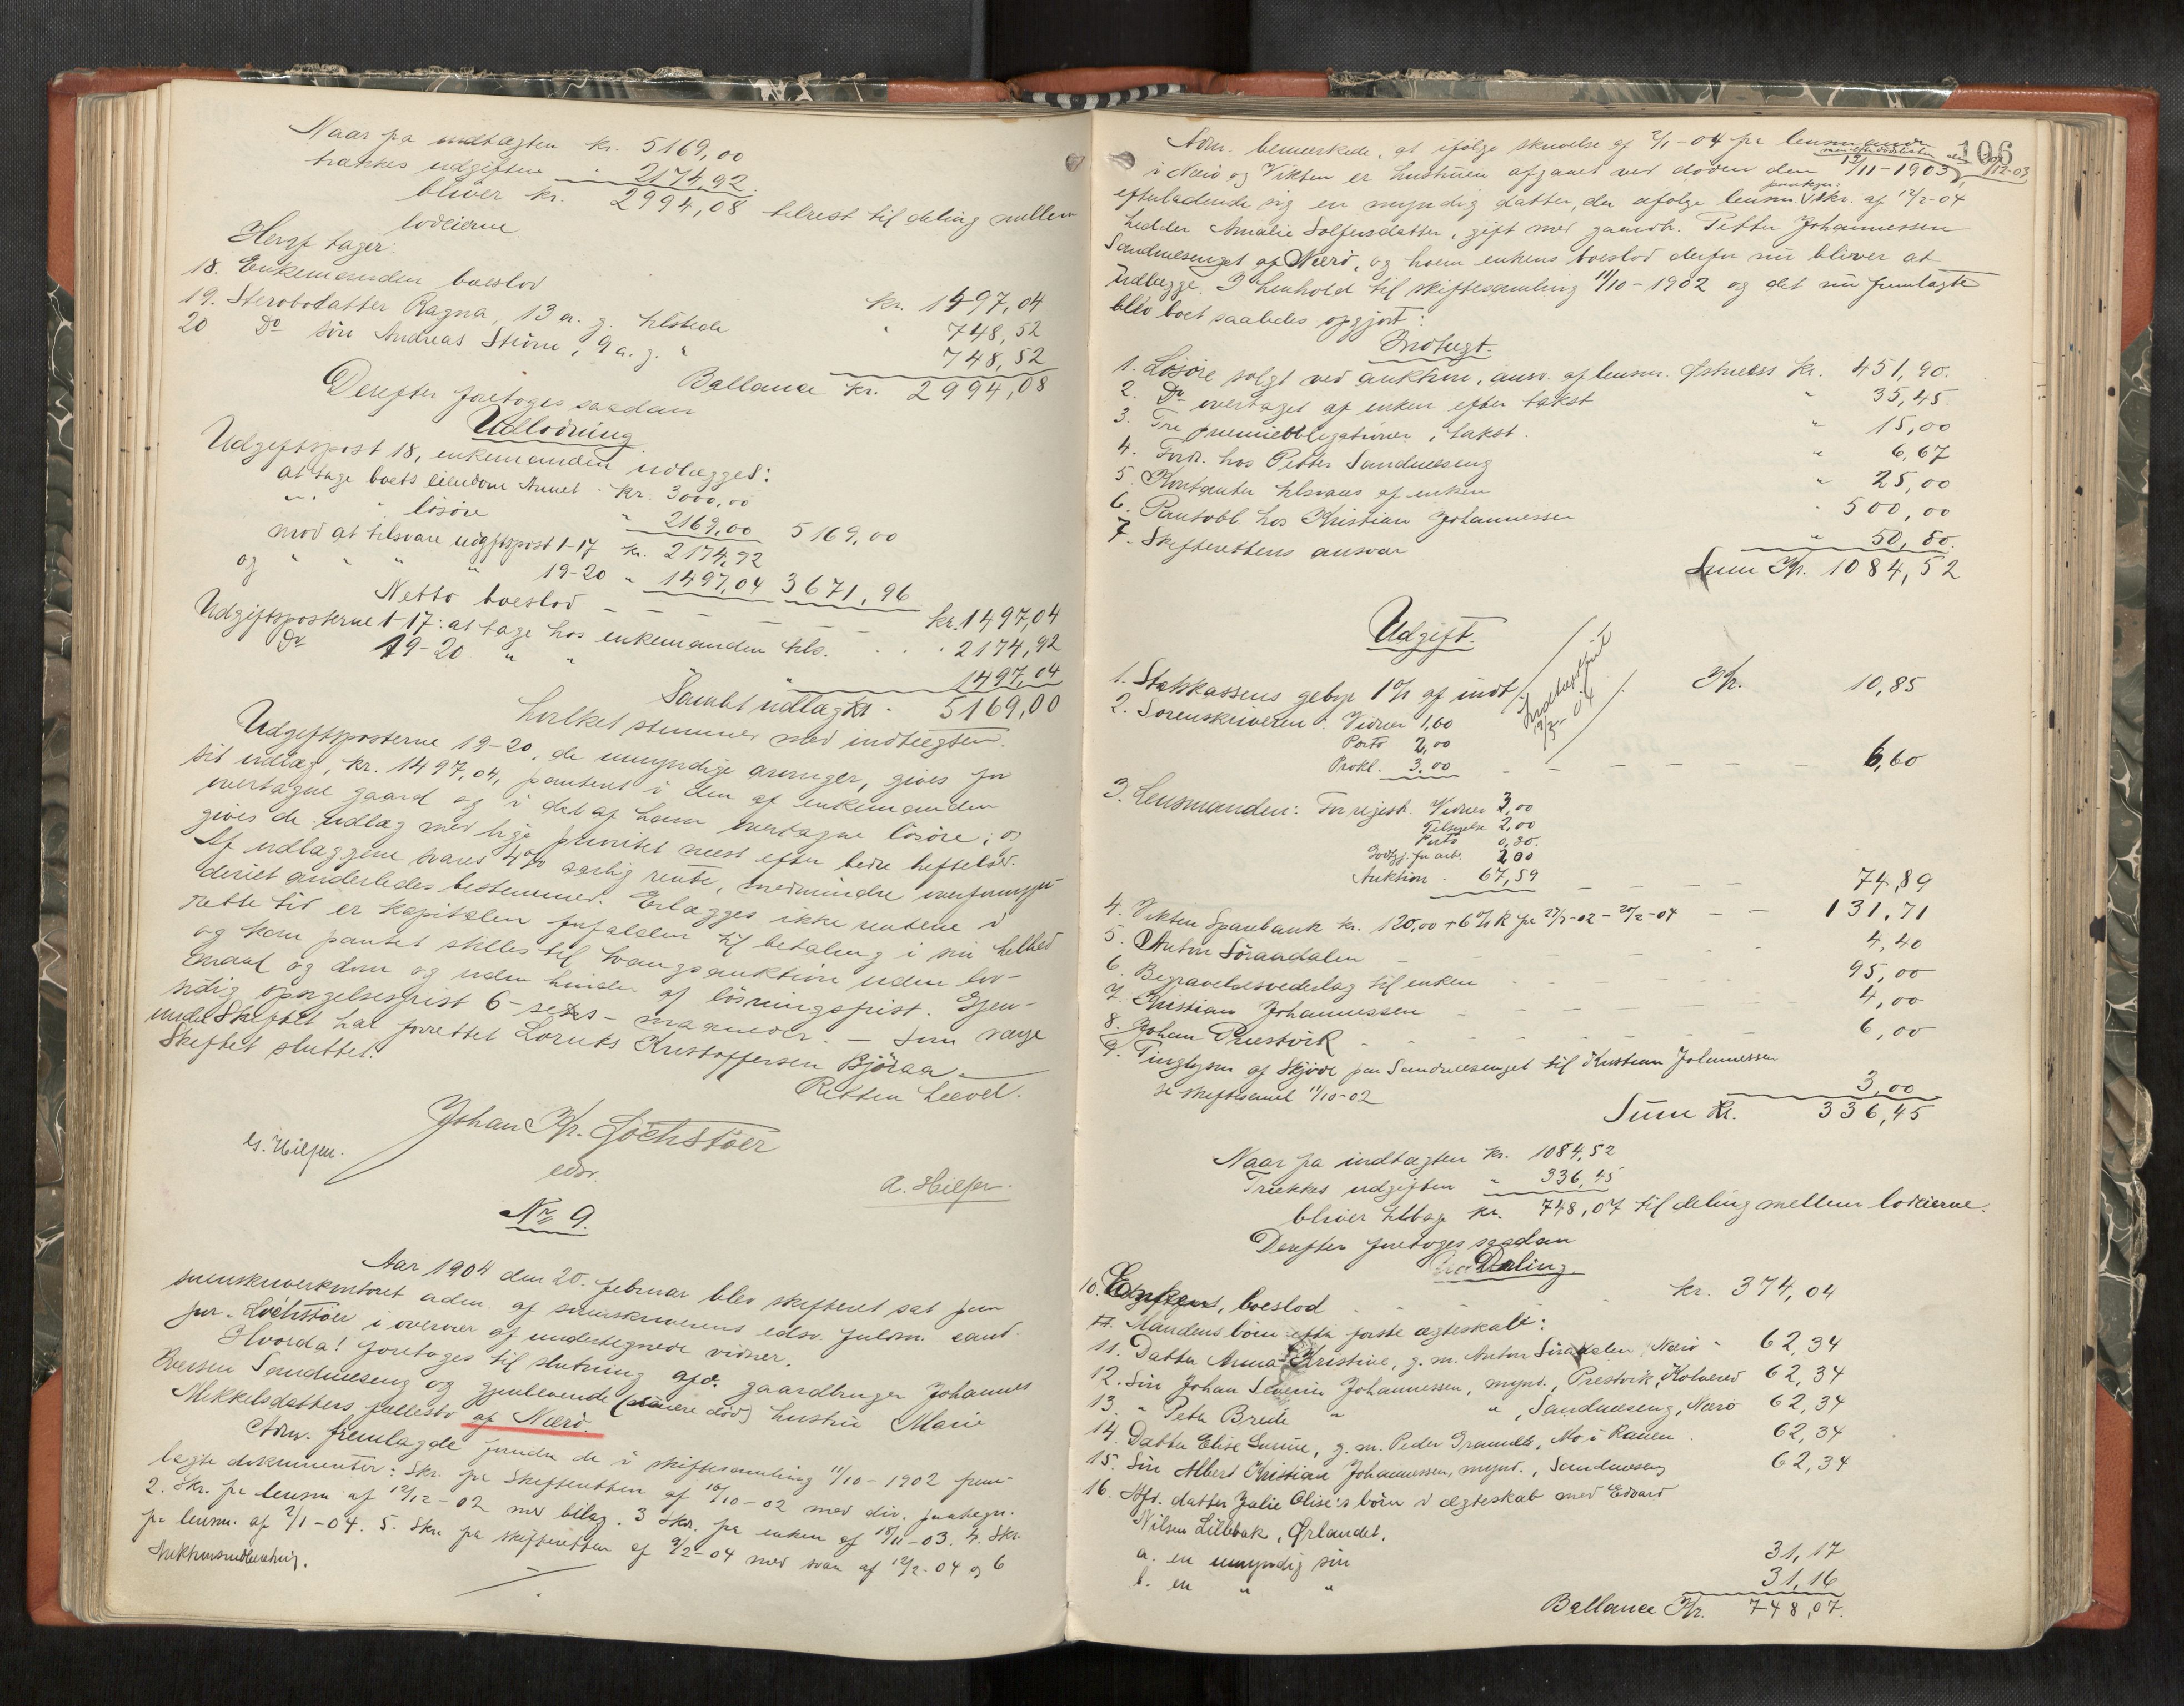 Naar fra indtægten kr. 5169,00
trækkes udgiften " 2174,92
bliver kr. 2994,08 tilrest til deling mellem
lodeierne.
Heraf tager:
18. Enkemanden boeslod kr. 1497,04
19. Sterbodatter Ragna, 13 a. g. tilstede " 748,52
20 Do søn Andreas Strøm, 9 a. g. " 748,52
Ballance kr. 2994,08
Derefter foretoges saadan
Udlodning
Udgiftspost 18, enkemanden udlægges:
at tage boets eiendom Aunet kr. 3000,00
" " " løsøre " 2169,00 5169,00
mod at tilsvare udgiftspost 1-17 kr. 2174,92
og " " " " 19-20 " 1497,04 3671,96
Netto boeslod - - - - - kr. 1497,04
Udgiftsposterne 1-17: at tage hos enkemanden tils. . . . 2174,92
Do 19-20 " " " 1497,04
Samlet udlagt kr. 5169,00
hvilket stemmer med indtægten.
Udgiftsposterne 19-20, de umyndige arvinger, gives for
sit udlæg, kr. 1497,04, panteret i den af enkemanden
overtagne gaard og i det af ham overtagne løsøre; og
gives de udlæg med lige prioritet næst efter bedre heftelser.
Af udlæggene svares 4% aarlig rente, medmindre overformyn-
deriet anderledes bestemmer. Erlægges ikke rentene i
rette tid er kapitalen forfalden til betaling i sin helhed
og kan pantet stilles til tvangsauktion uden lov-
maal og dom og uden hinder af løsningsfrist. Gjen-
sidig opsigelsesfrist 6 - sex - maaneder. - Som værge
under Skiftet har forrettet Lorents Kristoffersen Bjøraa.
Skiftet sluttet.
Retten hævet.
Johan Kr. Lochstöer
edsv.
A. Hilfen.
No 9.
Aar 1904 den 20. februar blev skifteret sat paa
sorenskriverkontoret adm. af sorenskriverens edsv. fuldm. cand.
jur. Lochstöer i overvær af undertegnede vidner.
Hvorda! foretoges til slutning afd. gaardbruger Johannes
Iversen Sandnesseng og gjenlevende (senere død) hustru Marie
Mikkelsdatters fællesbo af Nærø.
Adm. fremlagde foruden de i skiftesamling 11/10-1902 frem-
lagte dokumenter: Skr. fra Skifteretten af 18/10-02 med div. paategn.
2. Skr. fra lensm. af 12/12-02 med bilag. 3 Skr. fra enken af 18/11-03. 4. Skr.
fra lensm. af 2/1-04. 5. Skr. fra skifteretten af 9/2-04 med svar af 12/2-04 og 6
Auktionsudskrift.
106
Adm. bemærkede, at ifølge skrivelse af 2/1-04 fra lensmanden
i Nærø og Vikten er hustruen afgaaet ved døden den 13/11-1903,
efterladende sig en myndig datter, der ifølge lensm. skr. af 12/2-04
hedder Amalie Solfensdatter, gift med gaardb. Petter Johannessen
Sandnesenget af Nærø, og hvem enkens boeslod derfor nu bliver at
udlægge. I henhold til skiftesamling 11/10-1902 og det nu fremlagte
blev boet saaledes opgjort:
Indtægt.
1. Løsøre solgt ved auktion, ansv. af lensm. kr. 451,90.
2. Do overtaget af enken efter takst " 35,45.
3. Tre premieobligationer, takst. " 15,00
4. Fordr. hos Petter Sandneseng " 6,67
5. Kontanter tilsvares af enken " 25,00
6. Pantobl. hos Kristian Johannessen . 500,00
7. Skifterettens ansvar " 50,50.
Sum Kr. 1084,52
Udgift.
1. Statskassens gebyr 1% af indt. Kr. 10,85
2. Sorenskriveren: Vidner 1,60
Porto 2,00
Prokl. 3,00 - - - - - 6,60
3. Lensmanden: For regist. Vidner 3,00
Tilsigelse 2,00
Porto 0,30.
Godtgj. for arb. 2,00
Auktion . 67,59 - - - - 74,89
4. Vikten Sparebank kr. 120,00 + 6% R fra 27/7-02 - 20/2-04 - - 131,71
5. Anton Sørandalen - - - 4,40
6. Begravelsesvederlag til enken - - - 95,00
7. Kristian Johannessen - - - - 4,00
8. Johan Prestvik - - - - 6,00
9. Tinglysn. af Skjøde paa Sandnesenget til Kristian Johannessen
se skiftesaml. 11/10-02 3,00
Sum Kr. 336,45
Naar fra indtægten kr. 1084,52
Trækkes udgiften " 336,45
bliver tilbage kr. 748,07 til deling mellem lodeierne.
Derefter foretoges saadan
Deling.
10. Enkens, boeslod . . . kr. 374,04
Mandens børn efter første ægteskab:
11. Datter Anna Kristine, g. m. Anton Sørandalen, Nærø " 62,34
12. Søn Johan Severin Johannessen, mynd., Prestvik, Kolvereid 62,34
13. " Peter Brede " " , Sandneseng, Nærø 62,34
14. Datter Elise Susine, g. m. Peder , Mo i Ranen . 62,34
15. Søn Albert Kristian Johannessen, mynd., Sandneseng 62,34
16. Afd. datter Julie Olise's børn i ægteskab med Edvard
Nilsen Lillebak, Ørlandet.
a. en umyndig søn 31,17
b. en " " 31,16
Ballance Kr. 748,07.